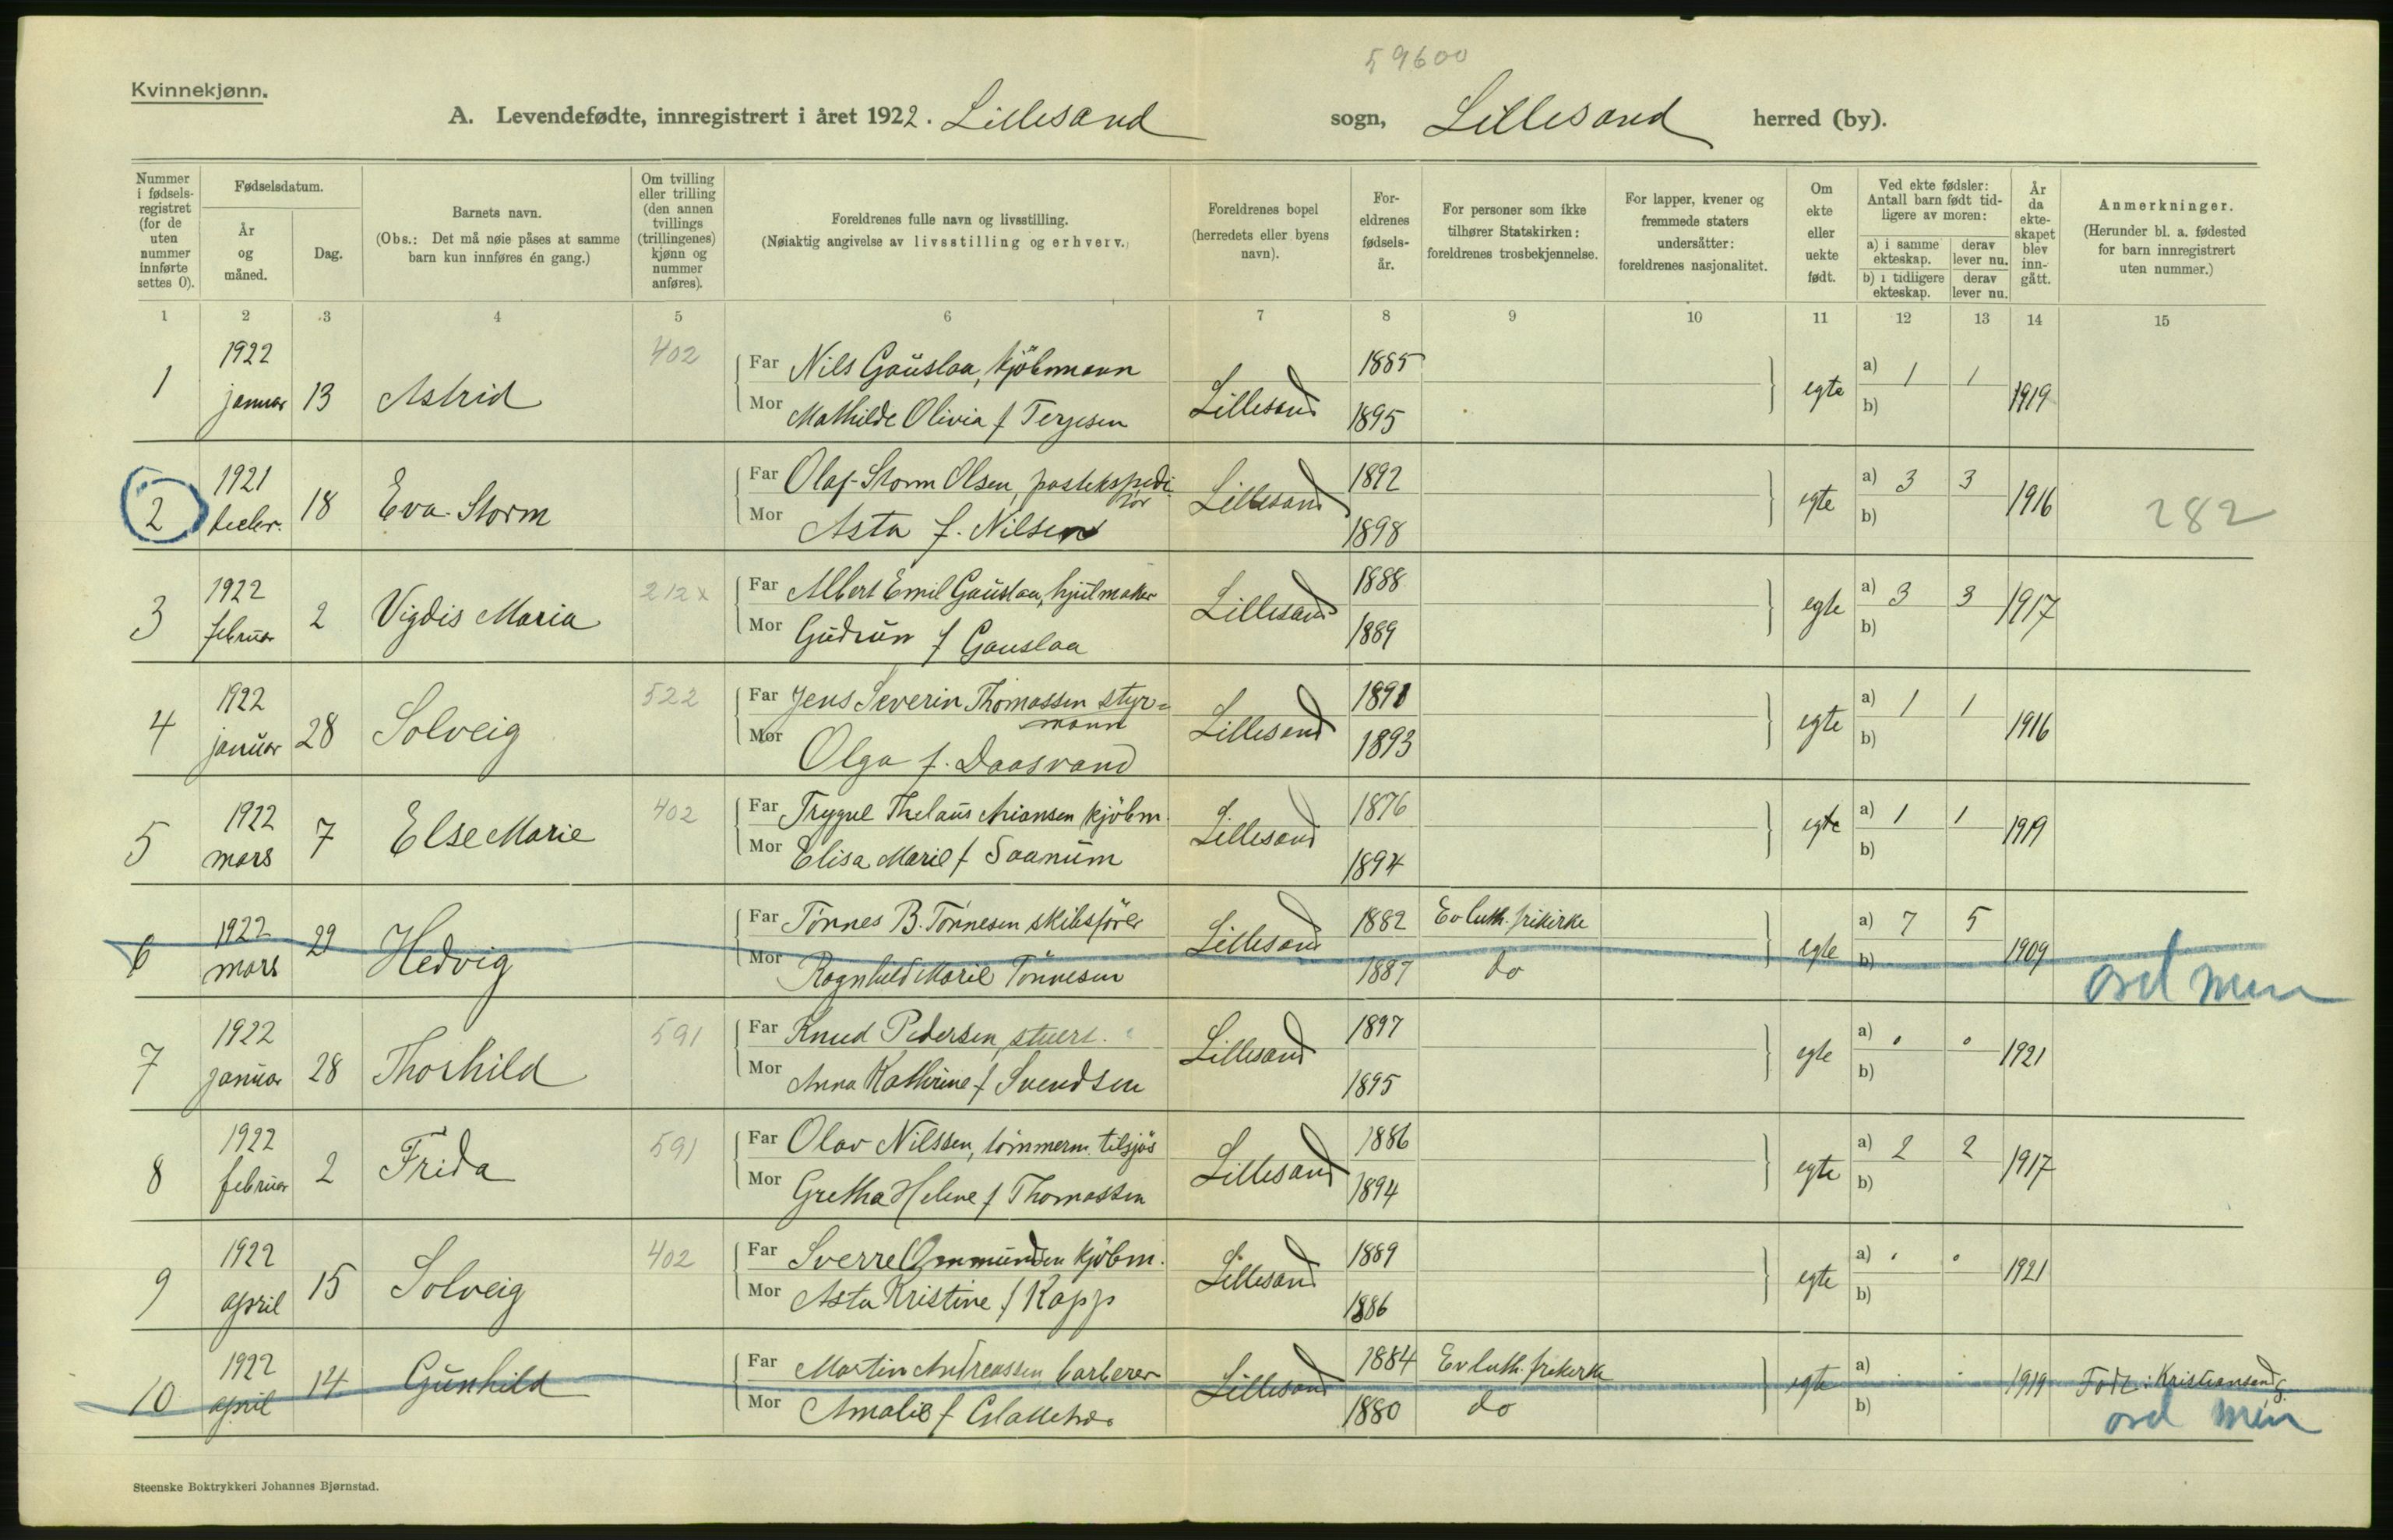 59600
Kvinnekjønn.
A. Levendefødte, innregistrert i året 1922. Lillesand sogn, Lillesand herred (by).
Nummer i fødsels-registret (for de uten nummer innførte settes 0).
Fødselsdatum.
År og måned.
Dag.
Barnets navn.
(Obs.: Det må nøie påses at samme barn kun innføres én gang.)
Om tvilling eller trilling (den annen tvillings (trillingenes) kjønn og nummer anføres).
Foreldrenes fulle navn og livsstilling.
(Nøiaktig angivelse av livsstilling og erhverv.)
Foreldrenes bopel (herredets eller byens navn).
For-eldrenes fødsels-år.
For personer som ikke tilhører Statskirken: foreldrenes trosbekjennelse.
For lapper, kvener og fremmede staters undersåtter: foreldrenes nasjonalitet.
Om ekte eller uekte født.
Ved ekte fødsler: Antall barn født tid-ligere av moren:
a) i samme ekteskap. derav lever nu.
b) i tidligere ekteskap. derav lever nu.
År da ekte-skapet blev inn-gått.
Anmerkninger.
(Herunder bl. a. fødested for barn innregistrert uten nummer.)
1 2 3 4 5 6 7 8 9 10 11 12 13 14 15
1 1922 januar 13 Astrid 402 Far Nils Gauslaa, kjöbmann Lillesand 1885 egte a) 1 1 1919
Mor Mathilde Olivia f Terjesen 1895 b)
2 1921 decbr. 18 Eva Storm Far Olaf Storm Olsen, postekspedi-tör Lillesand 1892 egte a) 3 3 1916 282
Mor Asta f. Nilsen 1898 b)
3 1922 februar 2 Vigdis Maria 212x Far Albert Emil Gauslaa, hjulmaker Lillesand 1888 egte a) 3 3 1917
Mor Gudrun f Gauslaa 1889 b)
4 1922 januar 28 Solveig 522 Far Jens Severin Thomassen styr=mann Lillesand 1891 egte a) 1 1 1916
Mor Olga f. Daasvand 1893 b)
5 1922 mars 7 Else Marie 402 Far Trygve Kjöbm. Lillesand 1876 egte a) 1 1 1919
Mor Elisa Marie f Saanum 1894 b)
6 1922 mars 29 Hedvig Far Tönnes B. Tönnesen skibsförer Lillesand 1882 Ev luth. frikirke egte a) 7 5 1909
Mor Ragnhild Marie Tönnesen 1887 do b)
7 1922 januar 28 Thorhild 591 Far Knud Pedersen, stuert. Lillesand 1897 egte a) 1921
Mor Anna Kathrine f Svendsen 1895 b)
8 1922 februar 2 Frida 591 Far Olav Nilssen, tömmerm. tilsjös Lillesand 1886 egte a) 2 2 1917
Mor Gretha Helene f Thomassen 1894 b)
9 1922 april 15 Solveig 402 Far Sverre Ommundsen kjöbm. Lillesand 1889 egte a) 1921
Mor Asta Kristine f Kapp 1886 b)
10 1922 april 14 Gunhild Far Martin Andreassen barberer Lillesand 1884 Ev luth. frikirke egte a) 1919 Född i Kristiansand S.
Mor Amalie f 1880 do b)
Steenske Boktrykkeri Johannes Bjørnstad.